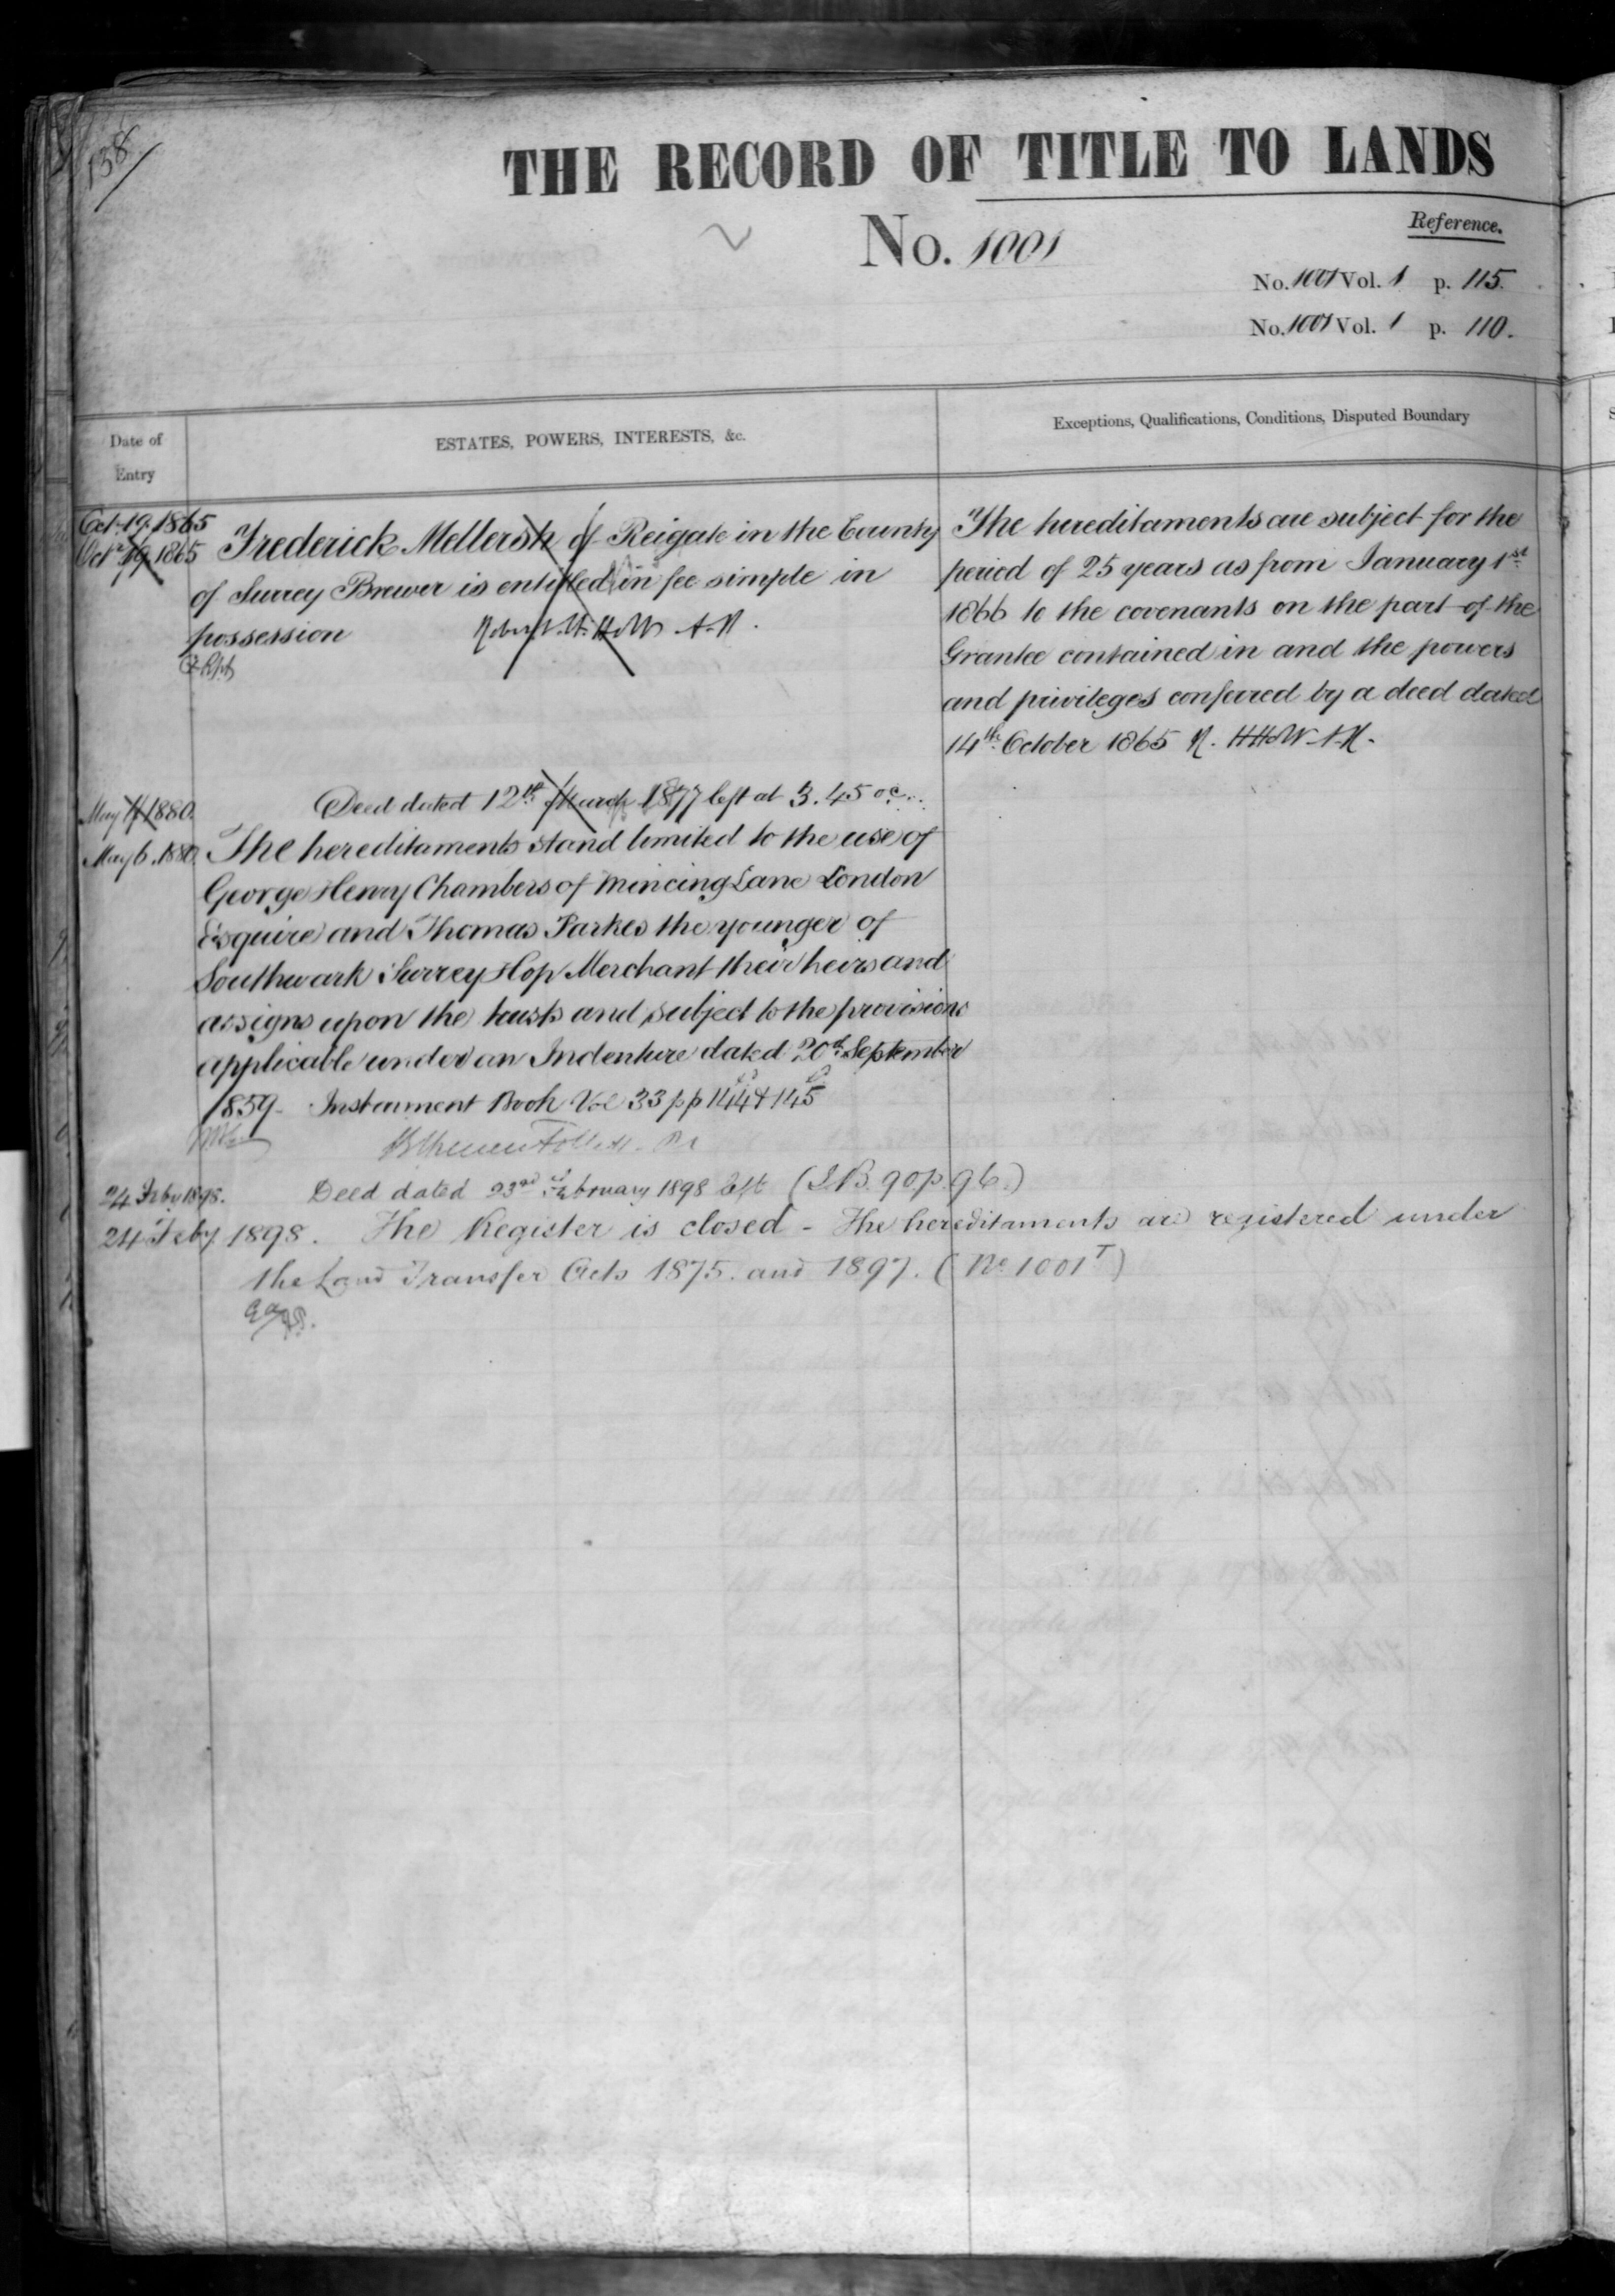 138
THE RECORD OF TITLE TO LANDS
No. 1001
Reference.
No. 1001 Vol. 1 p. 115.
No. 1001 Vol. 1 p. 110.
Date of Entry
ESTATES, POWERS, INTERESTS, &c.
Exceptions, Qualifications, Conditions, Disputed Boundary
Oct. 19. 1865
Octr 19 1865
Frederick Mellersh of Reigate in the County
of Surrey Brewer is entitled in fee simple in
possession
The hereditaments are subject for the
period of 25 years as from January 1st
1866 to the covenants on the part of the
Grantee contained in and the powers
and privileges conferred by a deed dated
14th October 1865
May 1880.
Deed dated 12th March 1877 left at 3.45 oc
May 6. 1880.
The hereditaments stand limited to the use of
George Henry Chambers of Mincing Lane London
Esquire and Thomas Parkes the younger of
Southwark Surrey Hop Merchant their heirs and
assigns upon the trusts and subject to the provisions
applicable under an Indenture dated 20th September
1859. Instrument Book Vol 33 pp 144 & 145
24 Feby 1898. Deed dated 23rd February 1898 left (I.B. 90 p. 96.)
24 Feby 1898. The Register is closed - The hereditaments are registered under
the Land Transfer Acts 1875. and 1897. (No. 1001T)